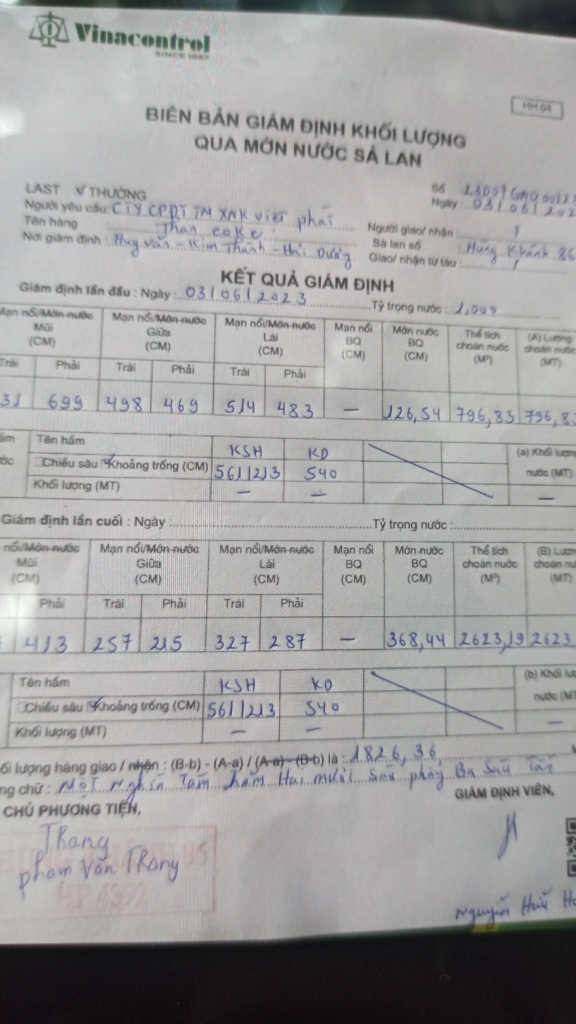 Vinacontrol
SINCE 1957
HH 04
BIÊN BẢN GIÁM ĐỊNH KHỐI LƯỢNG
QUA MỚN NƯỚC SÀ LAN
LAST ✓ THƯỜNG
Số
Ngày 03/06/202
Người yêu cầu: CTY CPĐT TM XNK Việt phát
Người giao/ nhận : /
Tên hàng : Than coke
Sà lan số : Hùng Khánh 86
Nơi giám định : Huy Văn - Kim Thành - Hải Dương
Giao/ nhận từ tàu : /
KẾT QUẢ GIÁM ĐỊNH
Giám định lần đầu : Ngày : 03/06/2023 Tỷ trọng nước : 1,000
Mạn nổi/Mớn nước Mũi (CM) Mạn nổi/Mớn nước Giữa (CM) Mạn nổi/Mớn nước Lái (CM) Mạn nổi BQ (CM) Mớn nước BQ (CM) Thể tích choán nước (M³) (A) Lượng choán nước (MT)
Trái Phải Trái Phải Trái Phải
31 699 498 469 514 483 — 126,54 796,83 796,8
Tên hầm KSH KD (a) Khối lượng
Chiều sâu ✓Khoảng trống (CM) 561/213 540 nước (MT)
Khối lượng (MT) — — —
Giám định lần cuối : Ngày : Tỷ trọng nước :
nổi/Mớn nước Mũi (CM) Mạn nổi/Mớn nước Giữa (CM) Mạn nổi/Mớn nước Lái (CM) Mạn nổi BQ (CM) Mớn nước BQ (CM) Thể tích choán nước (M³) (B) Lượng choán nước (MT)
Phải Trái Phải Trái Phải
413 257 215 327 287 — 368,44 2623,19 2623
Tên hầm KSH KD (b) Khối
Chiều sâu ✓Khoảng trống (CM) 561/213 540 nước (MT)
Khối lượng (MT) — — —
ối lượng hàng giao / nhận : (B-b) - (A-a) / (A-a) - (B-b) là : 1826,36
ng chữ : Một nghìn tám trăm hai mươi sáu phẩy Ba sáu tấn
CHỦ PHƯƠNG TIỆN,
GIÁM ĐỊNH VIÊN,
TRang
phạm Văn TRang
Nguyễn Hữu